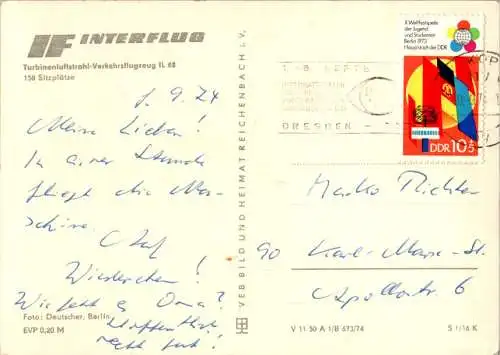 IF INTERFLUG
Turbinenluftstrahl-Verkehrsflugzeug IL 62
150 Sitzplätze
1.9.74
Meine Lieben!
In einer Stunde
fliegt die Ma-
schine.
Olaf
Wiedersehen!
Wie geht es Oma?
Hoffentlich
recht gut!
Foto: Deutscher, Berlin
EVP 0,20 M
VEB BILD UND HEIMAT REICHENBACH i. V.
X. Weltfestspiele
der Jugend
und Studenten
Berlin 1973
Hauptstadt der DDR
DDR 10+5
DRESDEN
Marko Richter
90 Karl-Marx-St.
Apollostr. 6
V 11 50 A 1/B 673/74
S 1/16 K